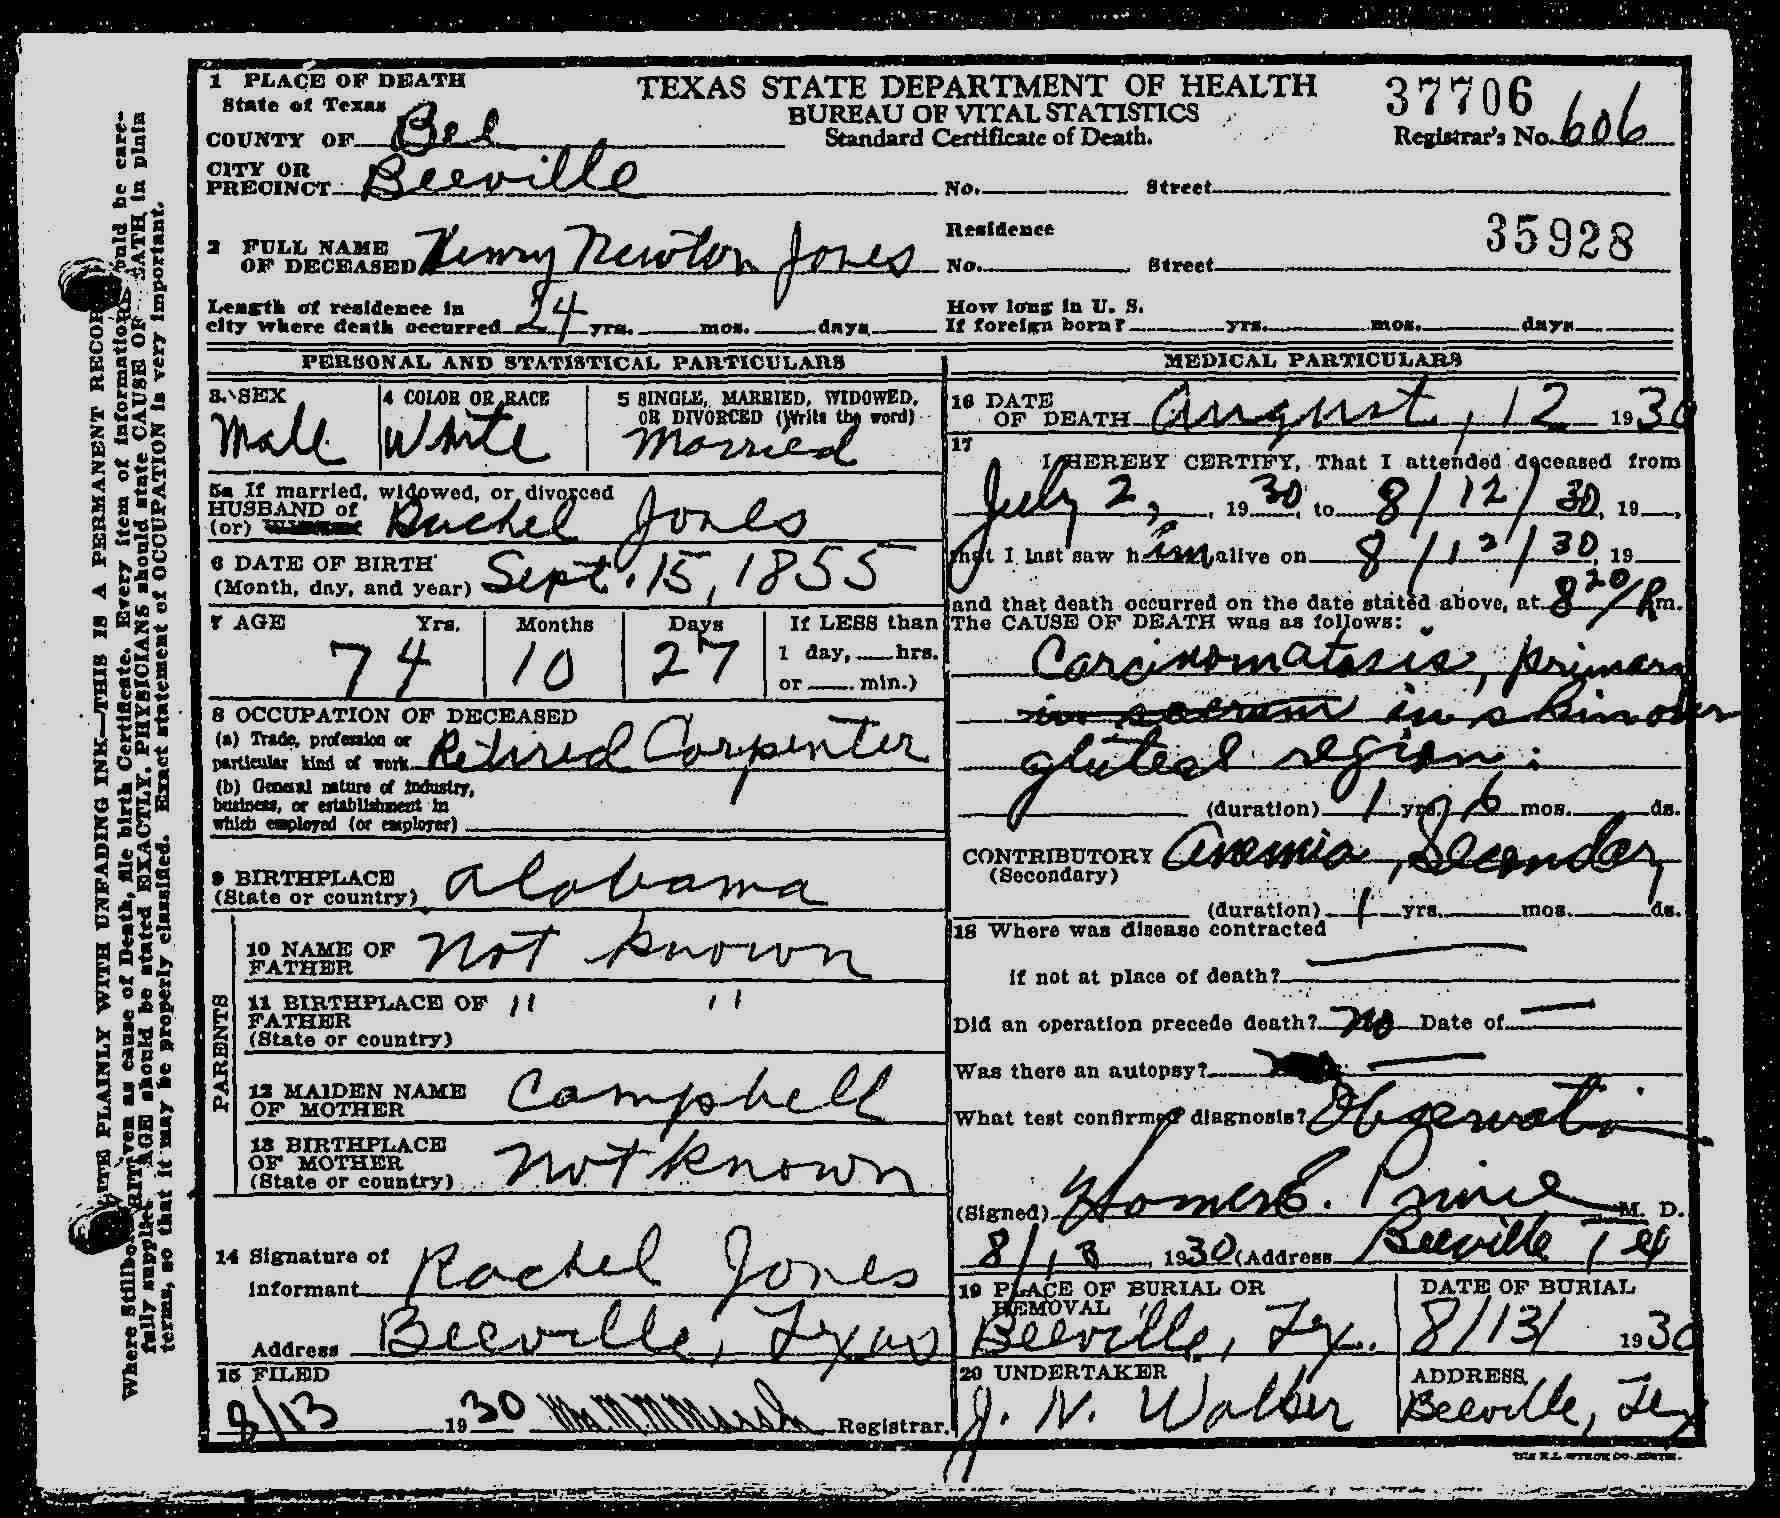 1 PLACE OF DEATH
State of Texas
COUNTY OF Bee
CITY OR
PRECINCT Beeville
TEXAS STATE DEPARTMENT OF HEALTH
BUREAU OF VITAL STATISTICS
Standard Certificate of Death.
37706
Registrar's No. 606
No. Street
2 FULL NAME
OF DECEASED Henry Newton Jones
Residence
35928
No. Street
Length of residence in
city where death occurred 24 yrs. mos. days
How long in U. S.
If foreign born? yrs. mos. days
PERSONAL AND STATISTICAL PARTICULARS
3. SEX
Male
4 COLOR OR RACE
White
5 SINGLE, MARRIED, WIDOWED,
OR DIVORCED (Write the word)
Married
5a If married, widowed, or divorced
HUSBAND of
(or) Rachel Jones
6 DATE OF BIRTH
(Month, day, and year) Sept. 15, 1855
7 AGE Yrs. Months Days If LESS than
74 10 27 1 day, hrs.
or min.)
8 OCCUPATION OF DECEASED
(a) Trade, profession or
particular kind of work Retired Carpenter
(b) General nature of industry,
business, or establishment in
which employed (or employer)
9 BIRTHPLACE
(State or country) Alabama
PARENTS
10 NAME OF
FATHER Not known
11 BIRTHPLACE OF " "
FATHER
(State or country)
12 MAIDEN NAME
OF MOTHER Campbell
13 BIRTHPLACE
OF MOTHER
(State or country) Not known
14 Signature of
Informant Rachel Jones
Address Beeville, Texas
15 FILED
8/13 1930 Mrs. M. Registrar.
MEDICAL PARTICULARS
16 DATE
OF DEATH August, 12 1930
17
I HEREBY CERTIFY, That I attended deceased from
July 2, 1930, to 8/12/30, 19 ,
that I last saw him alive on 8/12/30, 19
and that death occurred on the date stated above, at 8 20/P.m.
The CAUSE OF DEATH was as follows:
Carcinomatosis, primary
in sacrum in skin over
gluteal region.
(duration) 1 yrs. 6 mos. ds.
CONTRIBUTORY Anemia, Secondary
(Secondary)
(duration) 1 yrs. mos. ds.
18 Where was disease contracted
if not at place of death?
Did an operation precede death? No Date of
Was there an autopsy?
What test confirmed diagnosis? Observation
(Signed) Homer E. Prince M. D.
8/13, 1930 (Address Beeville Tex
19 PLACE OF BURIAL OR
REMOVAL
Beeville, Tex.
DATE OF BURIAL
8/13/ 1930
20 UNDERTAKER
J. N. Walker
ADDRESS
Beeville, Tex
WRITE PLAINLY WITH UNFADING INK—THIS IS A PERMANENT RECORD
Where Stillborn given as cause of Death, file birth Certificate. Every item of information should be care-
fully supplied. AGE should be stated EXACTLY. PHYSICIANS should state CAUSE OF DEATH in plain
terms, so that it may be properly classified. Exact statement of OCCUPATION is very important.